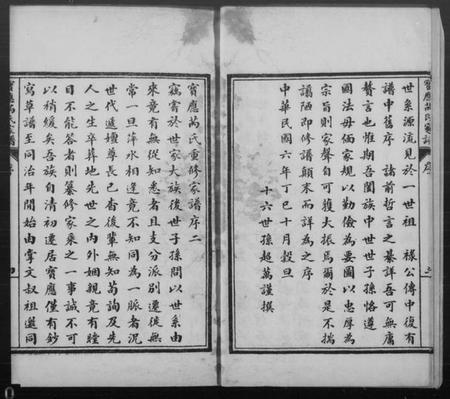 寶應萬氏家譜 序
世系源流見於一世祖 樣公傳中復有
譜中舊序 諸前哲言之綦詳吾可無庸
贅言也惟期吾闔族中世世子孫恪遵
國法毋佛家規以勤儉為要圖以忠厚為
宗旨則家聲自可獲大振焉爾於是不揣
譾陋即修譜顛末而詳為之序
中華民國六年丁巳十月穀旦
十六世孫超萬謹撰
寶應萬氏重修家譜序二
竊嘗於世家大族後世子孫問以世系由
來竟有無從知悉者且支分派別遷徙無
常一旦萍水相逢竟不知同為一脈者況
世代遞嬗尊長已耆後輩無知苟詢及先
人之生卒葬地先世之內外姻親竟有瞠
目不能答者則纂修家乘之一事誠不可
以稍緩矣吾族自清初遷居寶應僅有鈔
寫草譜至同治年間始由雲文叔祖邀同